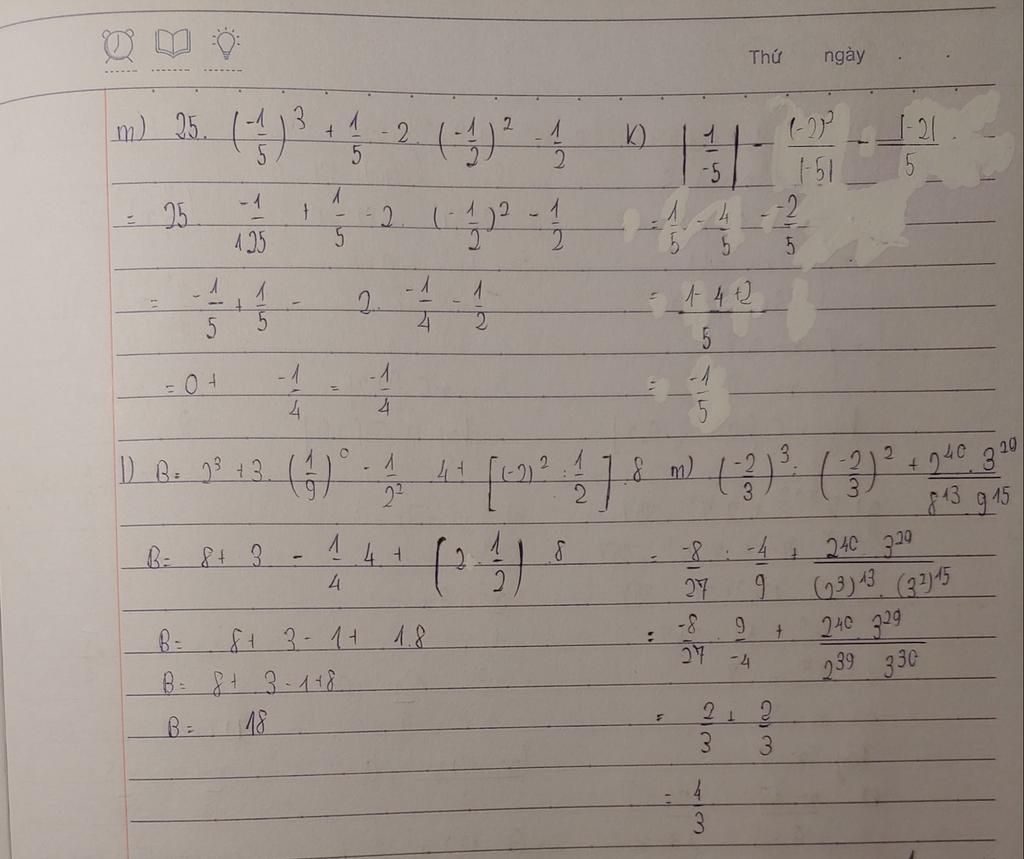 Thứ ngày . .
m) 25. (-1/5)^3 + 1/5 - 2. (-1/2)^2 - 1/2
= 25 -1/125 + 1/5 - 2. (-1/2)^2 - 1/2
= -1/5 + 1/5 - 2. -1/4 - 1/2
= 0 + -1/4 = -1/4
k) |1/-5| - (-2)^2/|-5| - |-2|/5
= 1/5 - 4/5 - -2/5
= 1-4+2/5
= -1/5
l) B= 2^3 + 3. (1/9)^0 - 1/2^2 4 + [(-2)^2 : 1/2] .8
B= 8 + 3 - 1/4 .4 + (2 . 1/2) .8
B= 8 + 3 - 1 + 1.8
B= 8 + 3 - 1 + 8
B= 18
m) (-2/3)^3 : (-2/3)^2 + 2^40 . 3^29/8^13 9^15
= -8/27 : -4/9 + 2^40 3^29/(2^3)^13 . (3^2)^15
= -8/27 . 9/-4 + 2^40 3^29/2^39 3^30
= 2/3 + 2/3
= 4/3